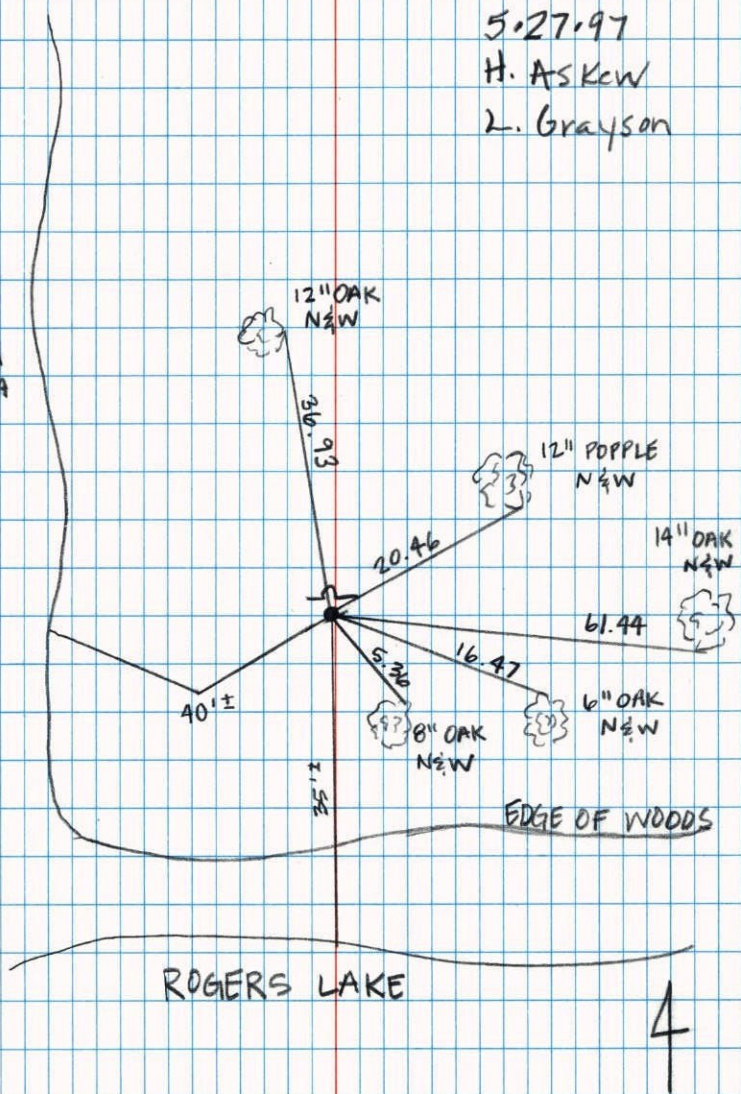 5.27.97
H. Askew
L. Grayson
12" OAK
N&W
36.93
12" POPPLE
N&W
20.46
14" OAK
N&W
61.44
16.47
5.36
6" OAK
N&W
40'±
8" OAK
N&W
35'±
EDGE OF WOODS
ROGERS LAKE